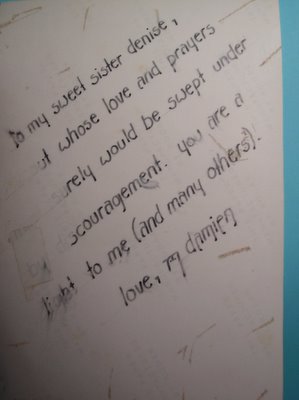 To my sweet sister denise,
whose love and prayers
surely would be swept under
by discouragement. you are a
light to me (and many others)!
love, damien